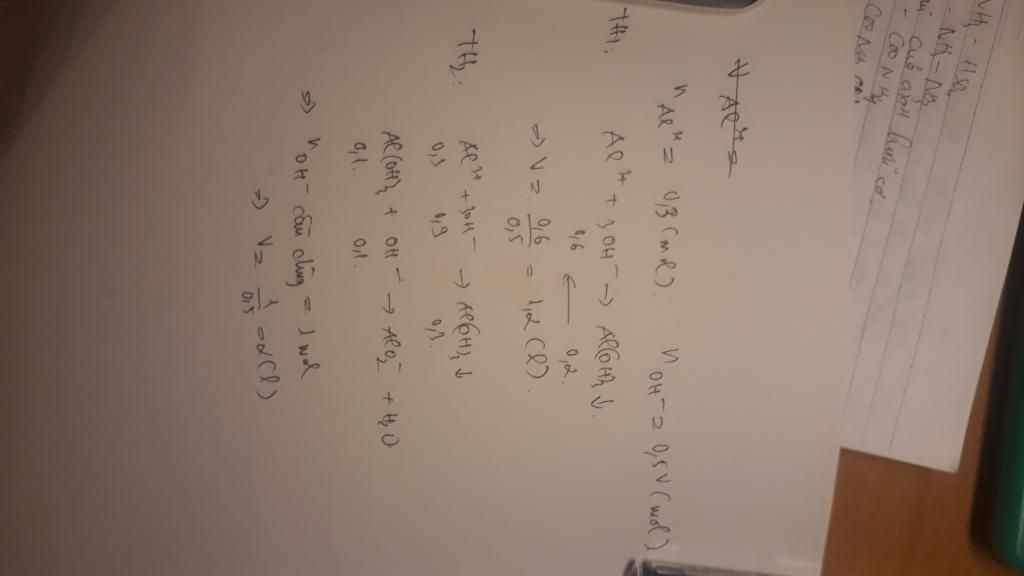 V Al³⁺ =
n Al³⁺ = 0,3 (mol). n OH⁻ = 0,5V (mol)
TH1: Al³⁺ + 3OH⁻ → Al(OH)3 ↓.
0,6 ← 0,2.
⇒ V = 0,6/0,5 = 1,2 (l).
TH2: Al³⁺ + 3OH⁻ → Al(OH)3 ↓
0,3 0,9 0,3.
Al(OH)3 + OH⁻ → AlO2⁻ + H2O
0,1. 0,1.
⇒ n OH⁻ cần dùng = 1 mol.
⇒ V = 1/0,5 = 2 (l)